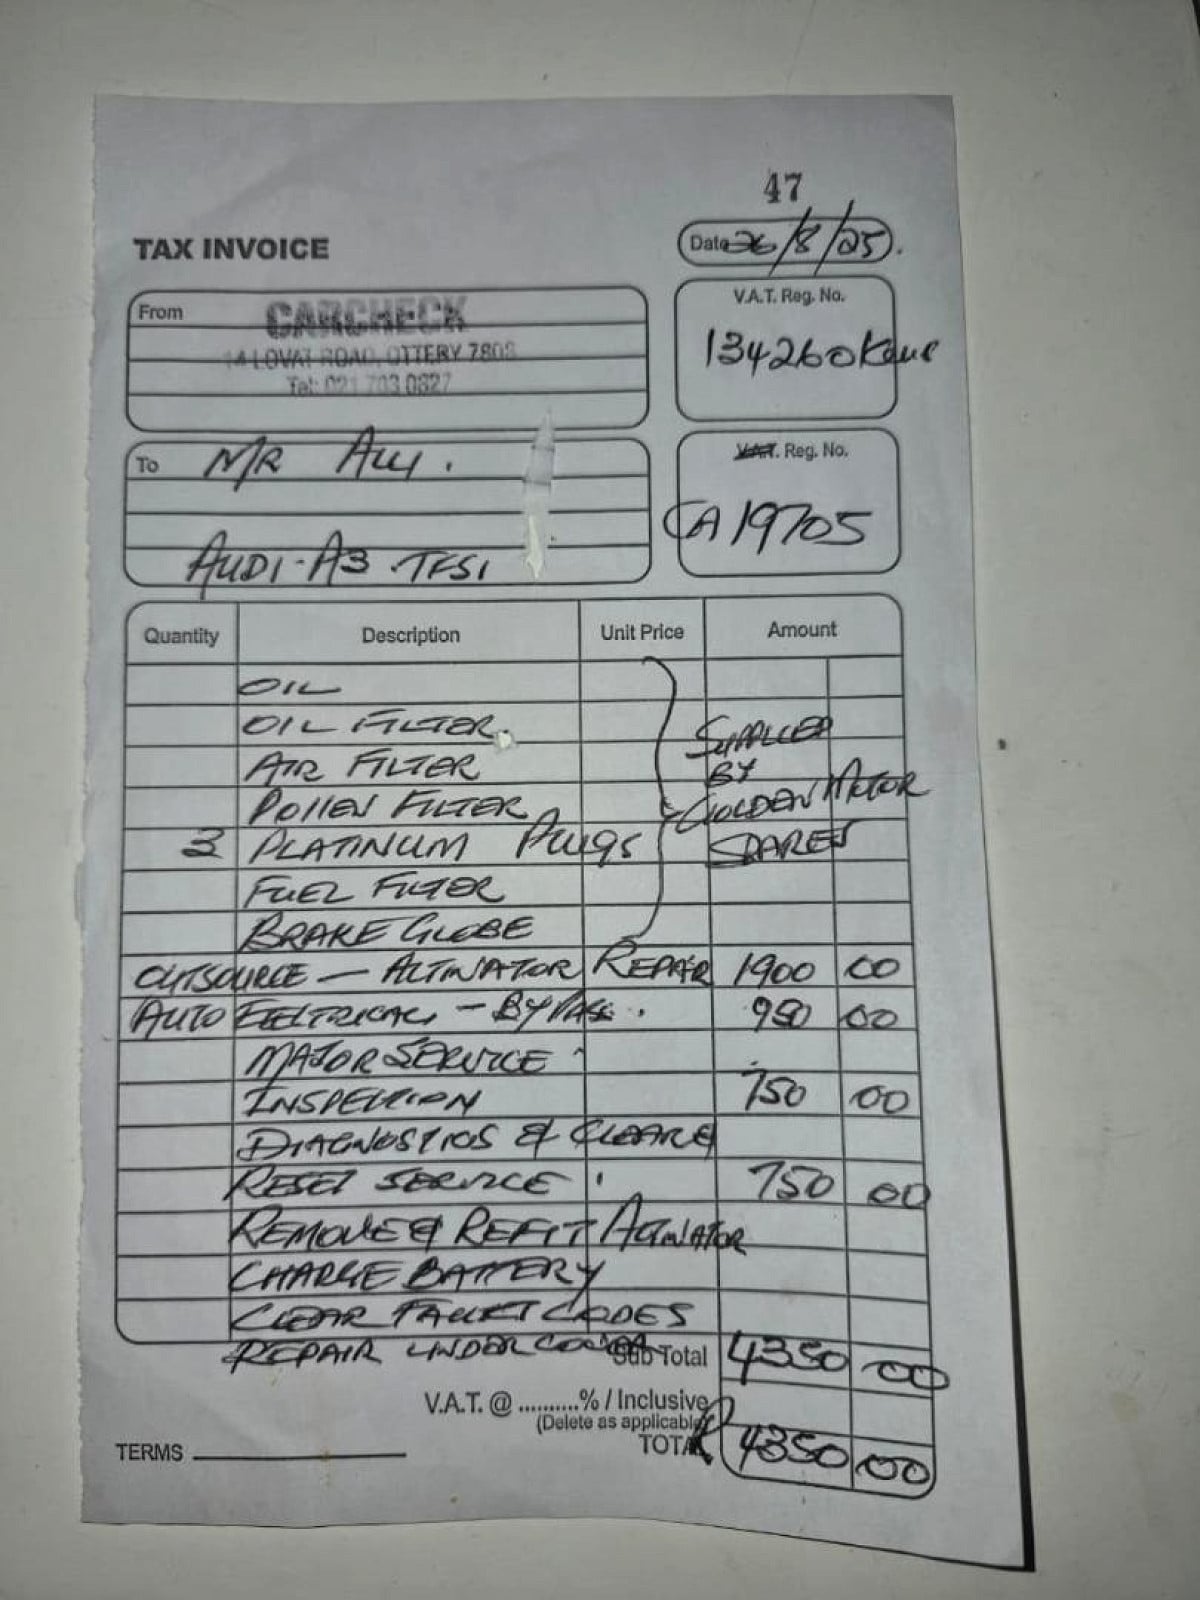 47
TAX INVOICE
Date 26/8/25.
From
CARCHECK
14 LOVAT ROAD, OTTERY 7808
Tel: 021 703 0827
V.A.T. Reg. No.
134260Kms
To MR Ally.
AUDI-A3 TFSI
V.A.T. Reg. No.
CA19705
Quantity Description Unit Price Amount
OIL
OIL FILTER
AIR FILTER
POLLEN FILTER
3 PLATINUM Plugs
FUEL FILTER
BRAKE GLOBE
SUPPLIED
BY
GOLDEN MOTOR
SPARES
OUTSOURCE - ALTINATOR REPAIR 1900 00
AUTO ELECTRICAL - BYPASS. 950 00
MAJOR SERVICE
INSPECTION 750 00
DIAGNOSTICS &
RESET SERVICE 750 00
REMOVE & REFIT ALTINATOR
CHARGE BATTERY
CLEAR FAULT CODES
REPAIR UNDER
Sub Total 4350 00
V.A.T. @ ..........% / Inclusive
(Delete as applicable)
TOTAL R 4350 00
TERMS